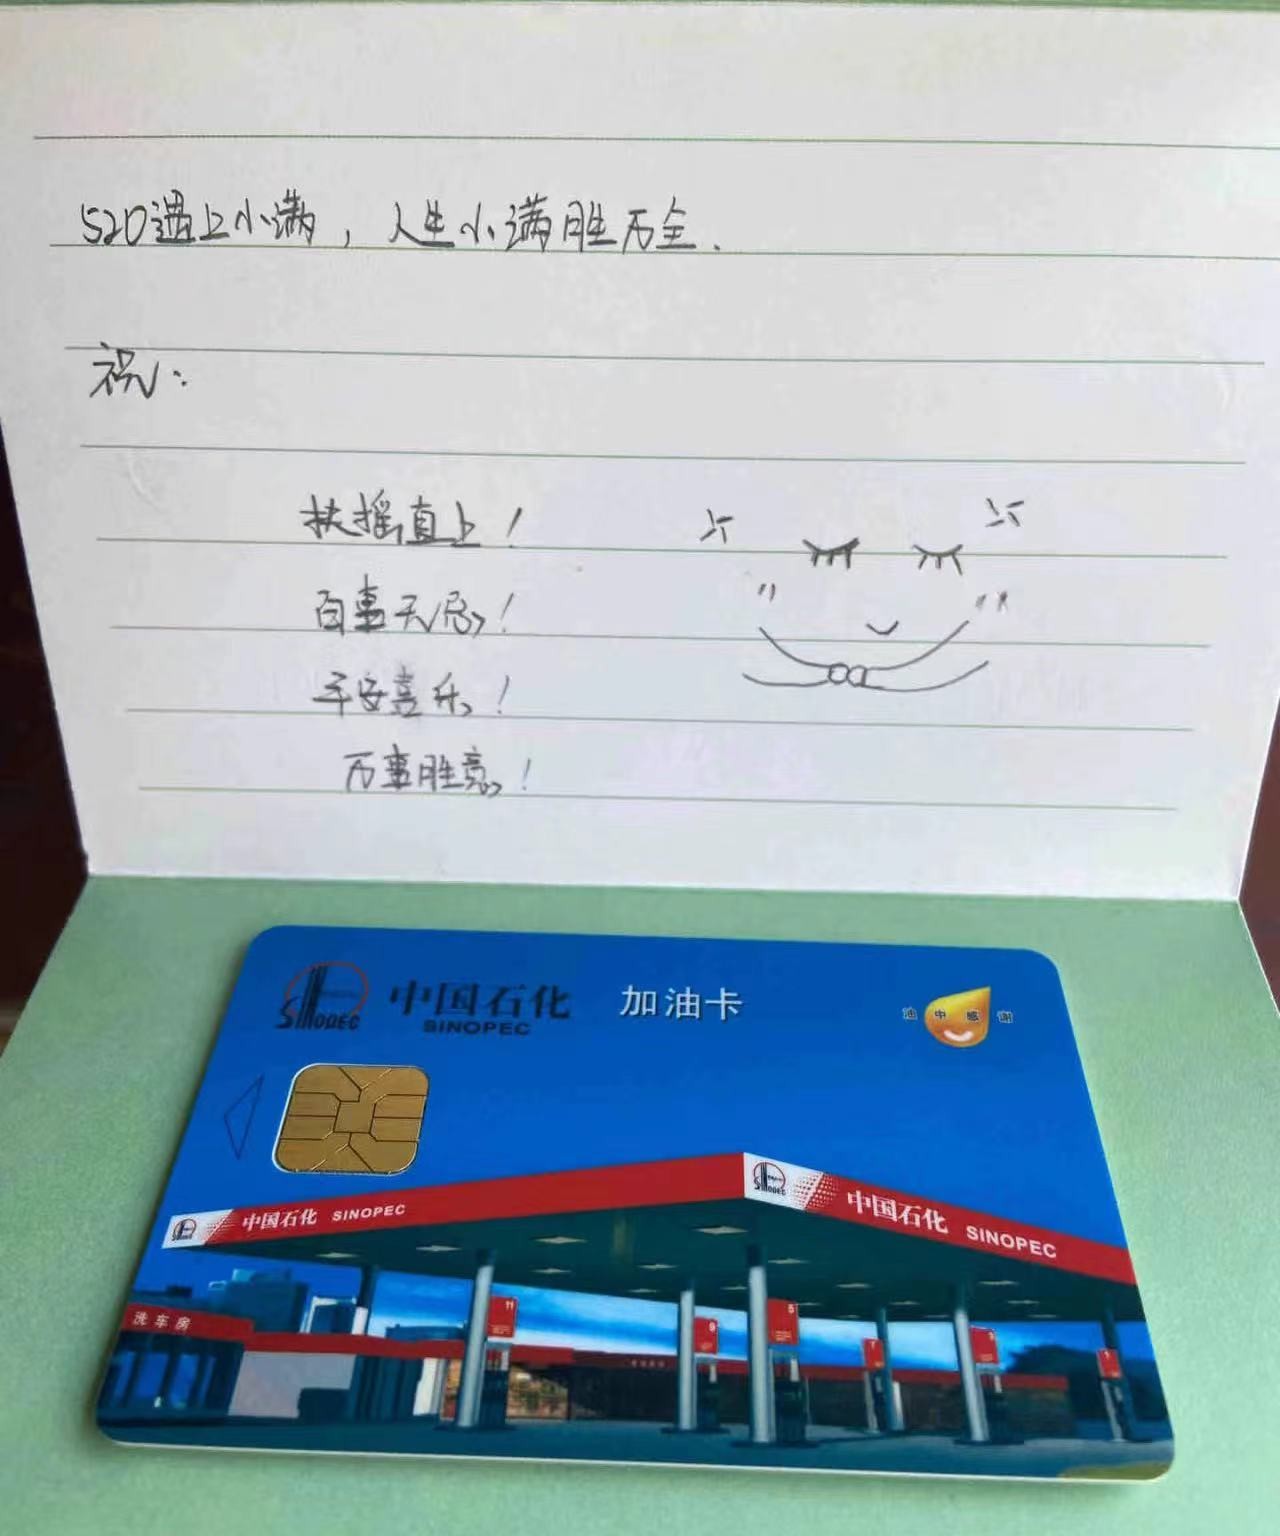 520遇上小满，人生小满胜万全.
祝:
扶摇直上!
百事无忌!
平安喜乐!
万事胜意!
SINOPEC
中国石化
SINOPEC
加油卡
油中感谢
SINOPEC
中国石化 SINOPEC
中国石化 SINOPEC
洗车房
11
9
5
7
3
1